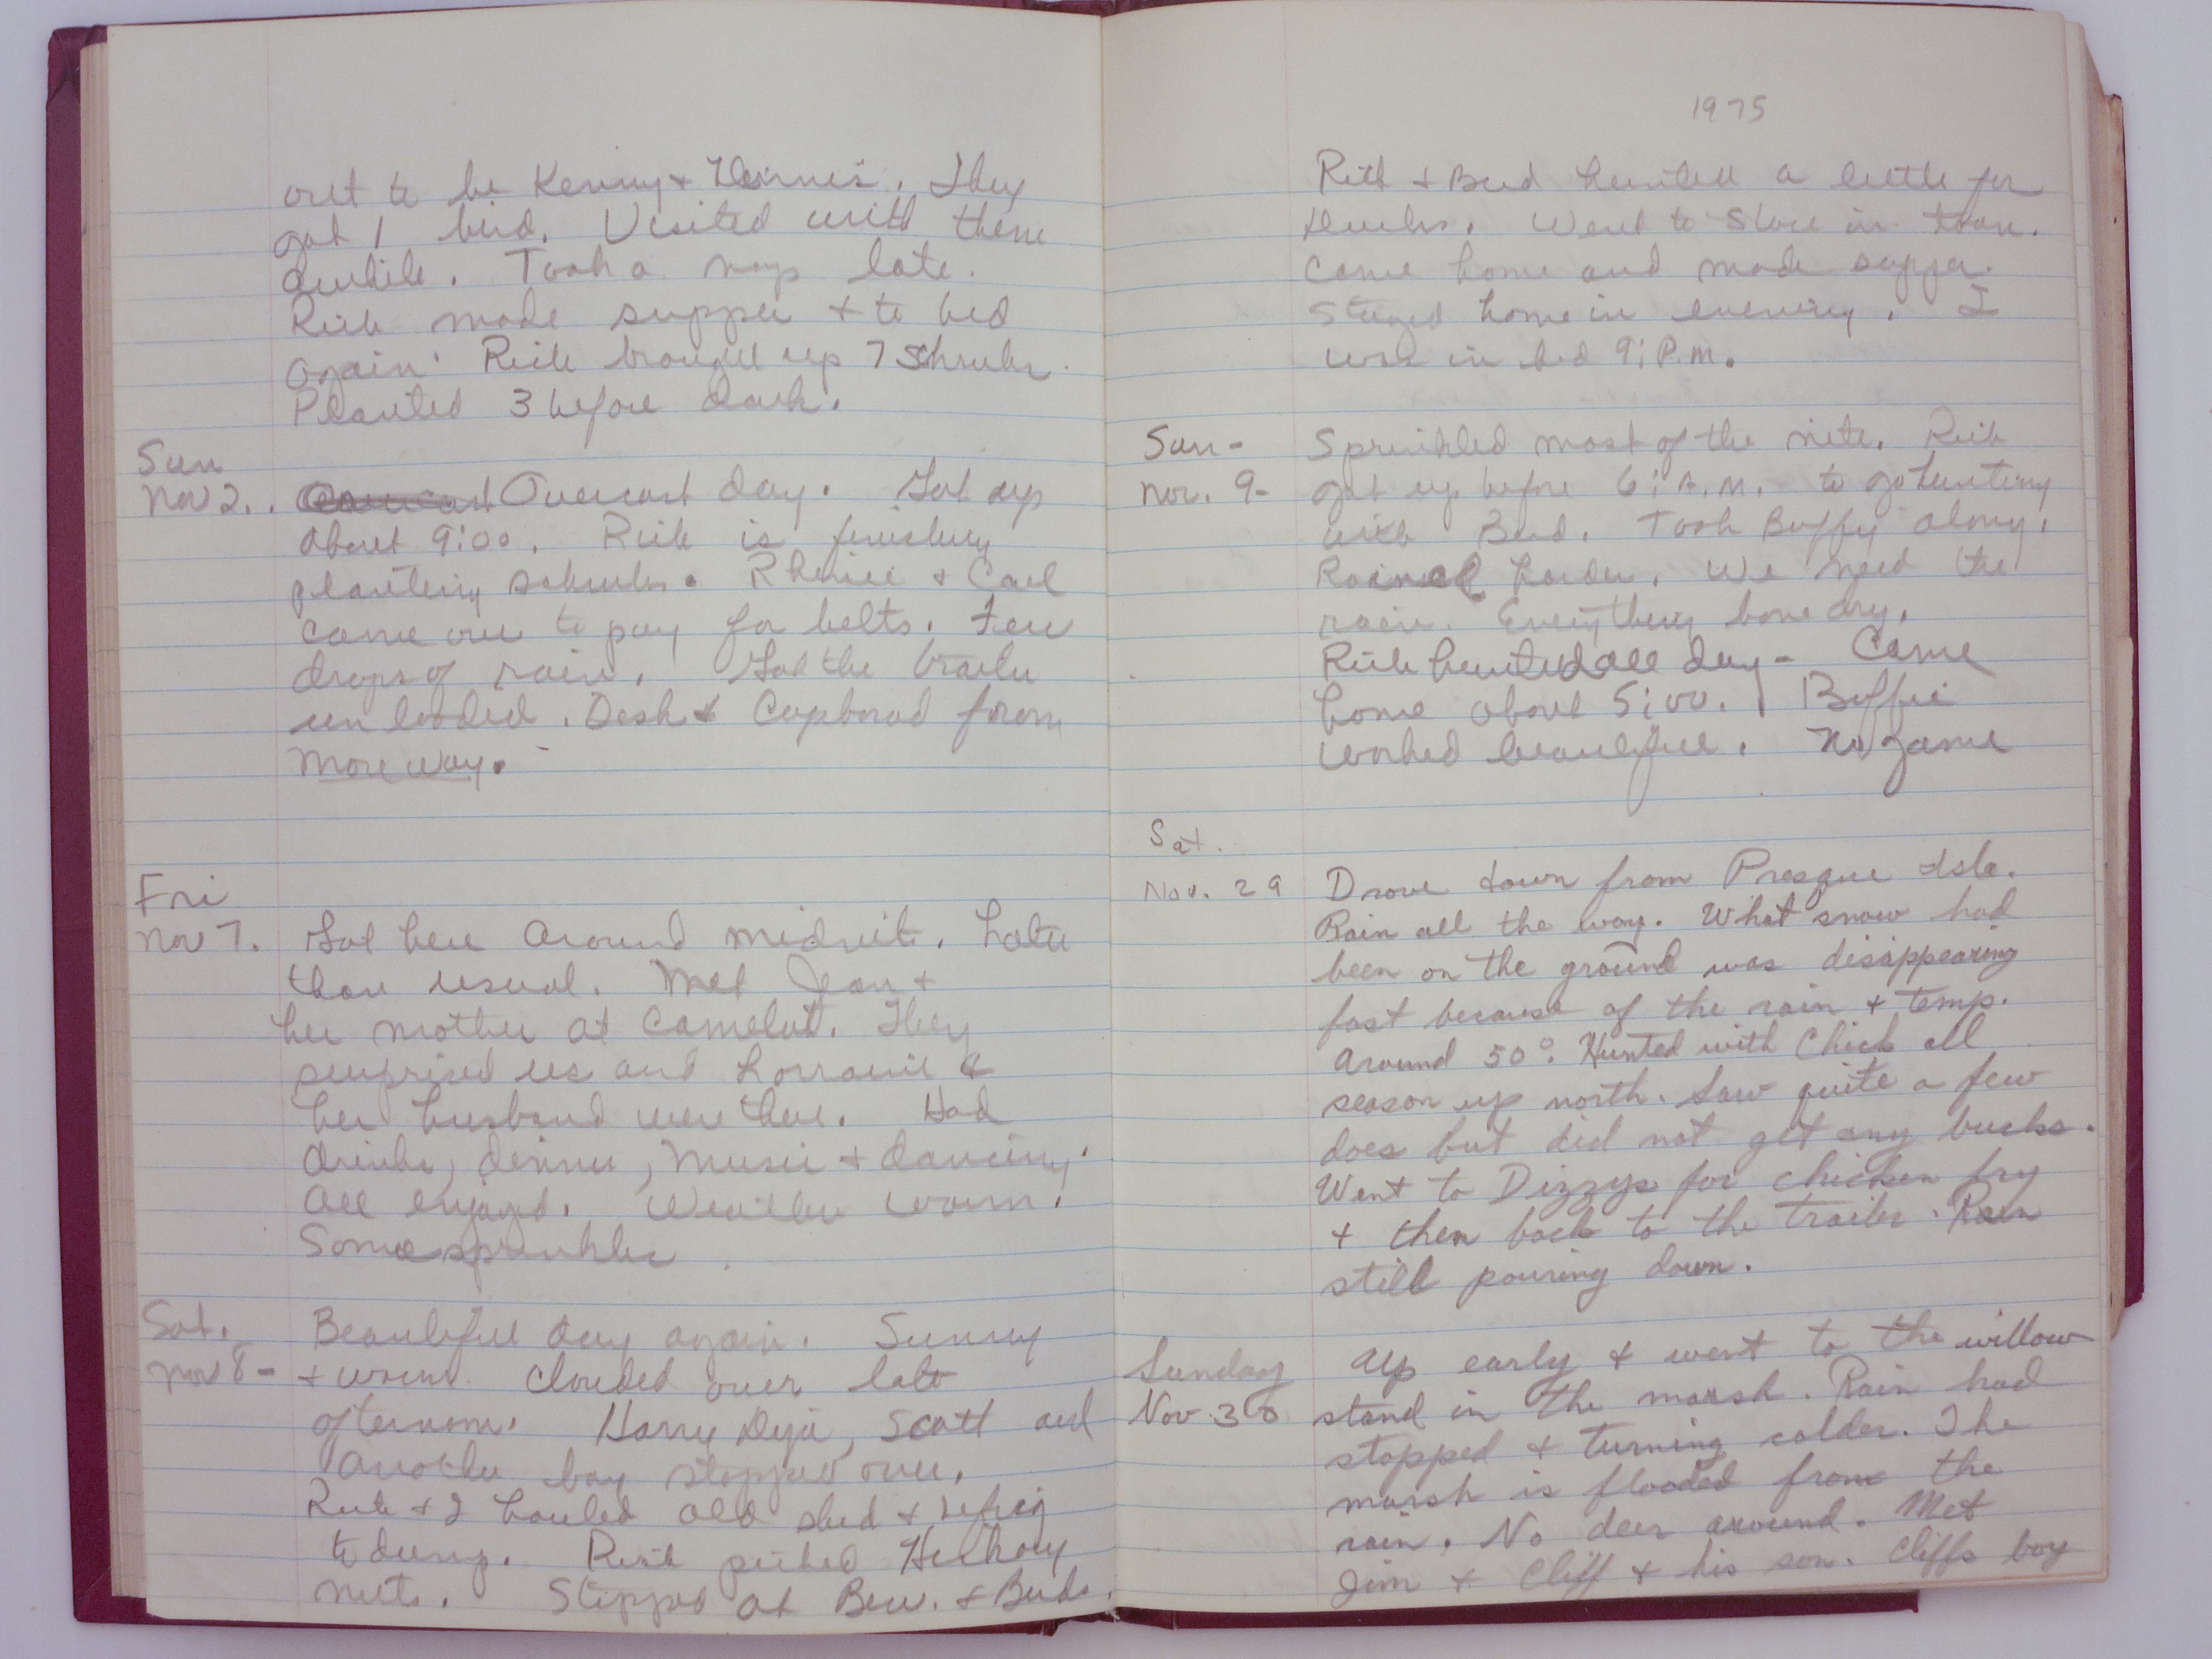 out to be Kenny + Dennis. They
got 1 bird. Visited with them
awhile. Took a nap late.
Rich made supper + to bed
again. Rich brought up 7 Schrubs.
Planted 3 before dark.
Sun
Nov 2. . Overcast day. Got up
about 9:00. Rich is finishing
planting schrubs. & Carl
came over to pay for belts. Few
drops of rain. Got the trailer
unloaded. Desk & Cupboard from
Moreway.
Fri
Nov 7. Got here around midnite. Later
than usual. Met Jean +
her mother at Camelot. They
surprised us and Lorraine &
her husband were there. Had
drinks, dinner, music + dancing.
All enjoyed. Weather warm.
Some sprinkles
Sat.
Nov 8 - Beautiful day again. Sunny
+ warm. Clouded over late
afternoon. Harry Deja, Scott and
another boy stopped over.
Rich + I hauled old shed + refrig
to dump. Rich picked Hickory
nuts. Stopped at Bev. + Buds.
1975
Rich + Bud hunted a little for
Ducks. Went to Store in town.
Came home and made supper.
Stayed home in evening. I
was in bed 9: P.M.
Sun -
Nov. 9 - Sprinkled most of the nite. Rich
got up before 6: A.M. to go hunting
with Bud. Took Buffy along.
Rained harder. We need the
rain. Everything bone dry.
Rich hunted all day - Came
home about 5:00. Buffie
worked beautiful. No game
Sat.
Nov. 29 Drove down from Presque Isle.
Rain all the way. What snow had
been on the ground was disappearing
fast because of the rain + temp.
around 50°. Hunted with Chick all
season up north. Saw quite a few
does but did not get any bucks.
Went to Dizzys for chicken fry
+ then back to the trailer. Rain
still pouring down.
Sunday
Nov. 30 Up early + went to the willow
stand in the marsh. Rain had
stopped + turning colder. The
marsh is flooded from the
rain. No deer around. Met
Jim + Cliff + his son. Cliffs boy